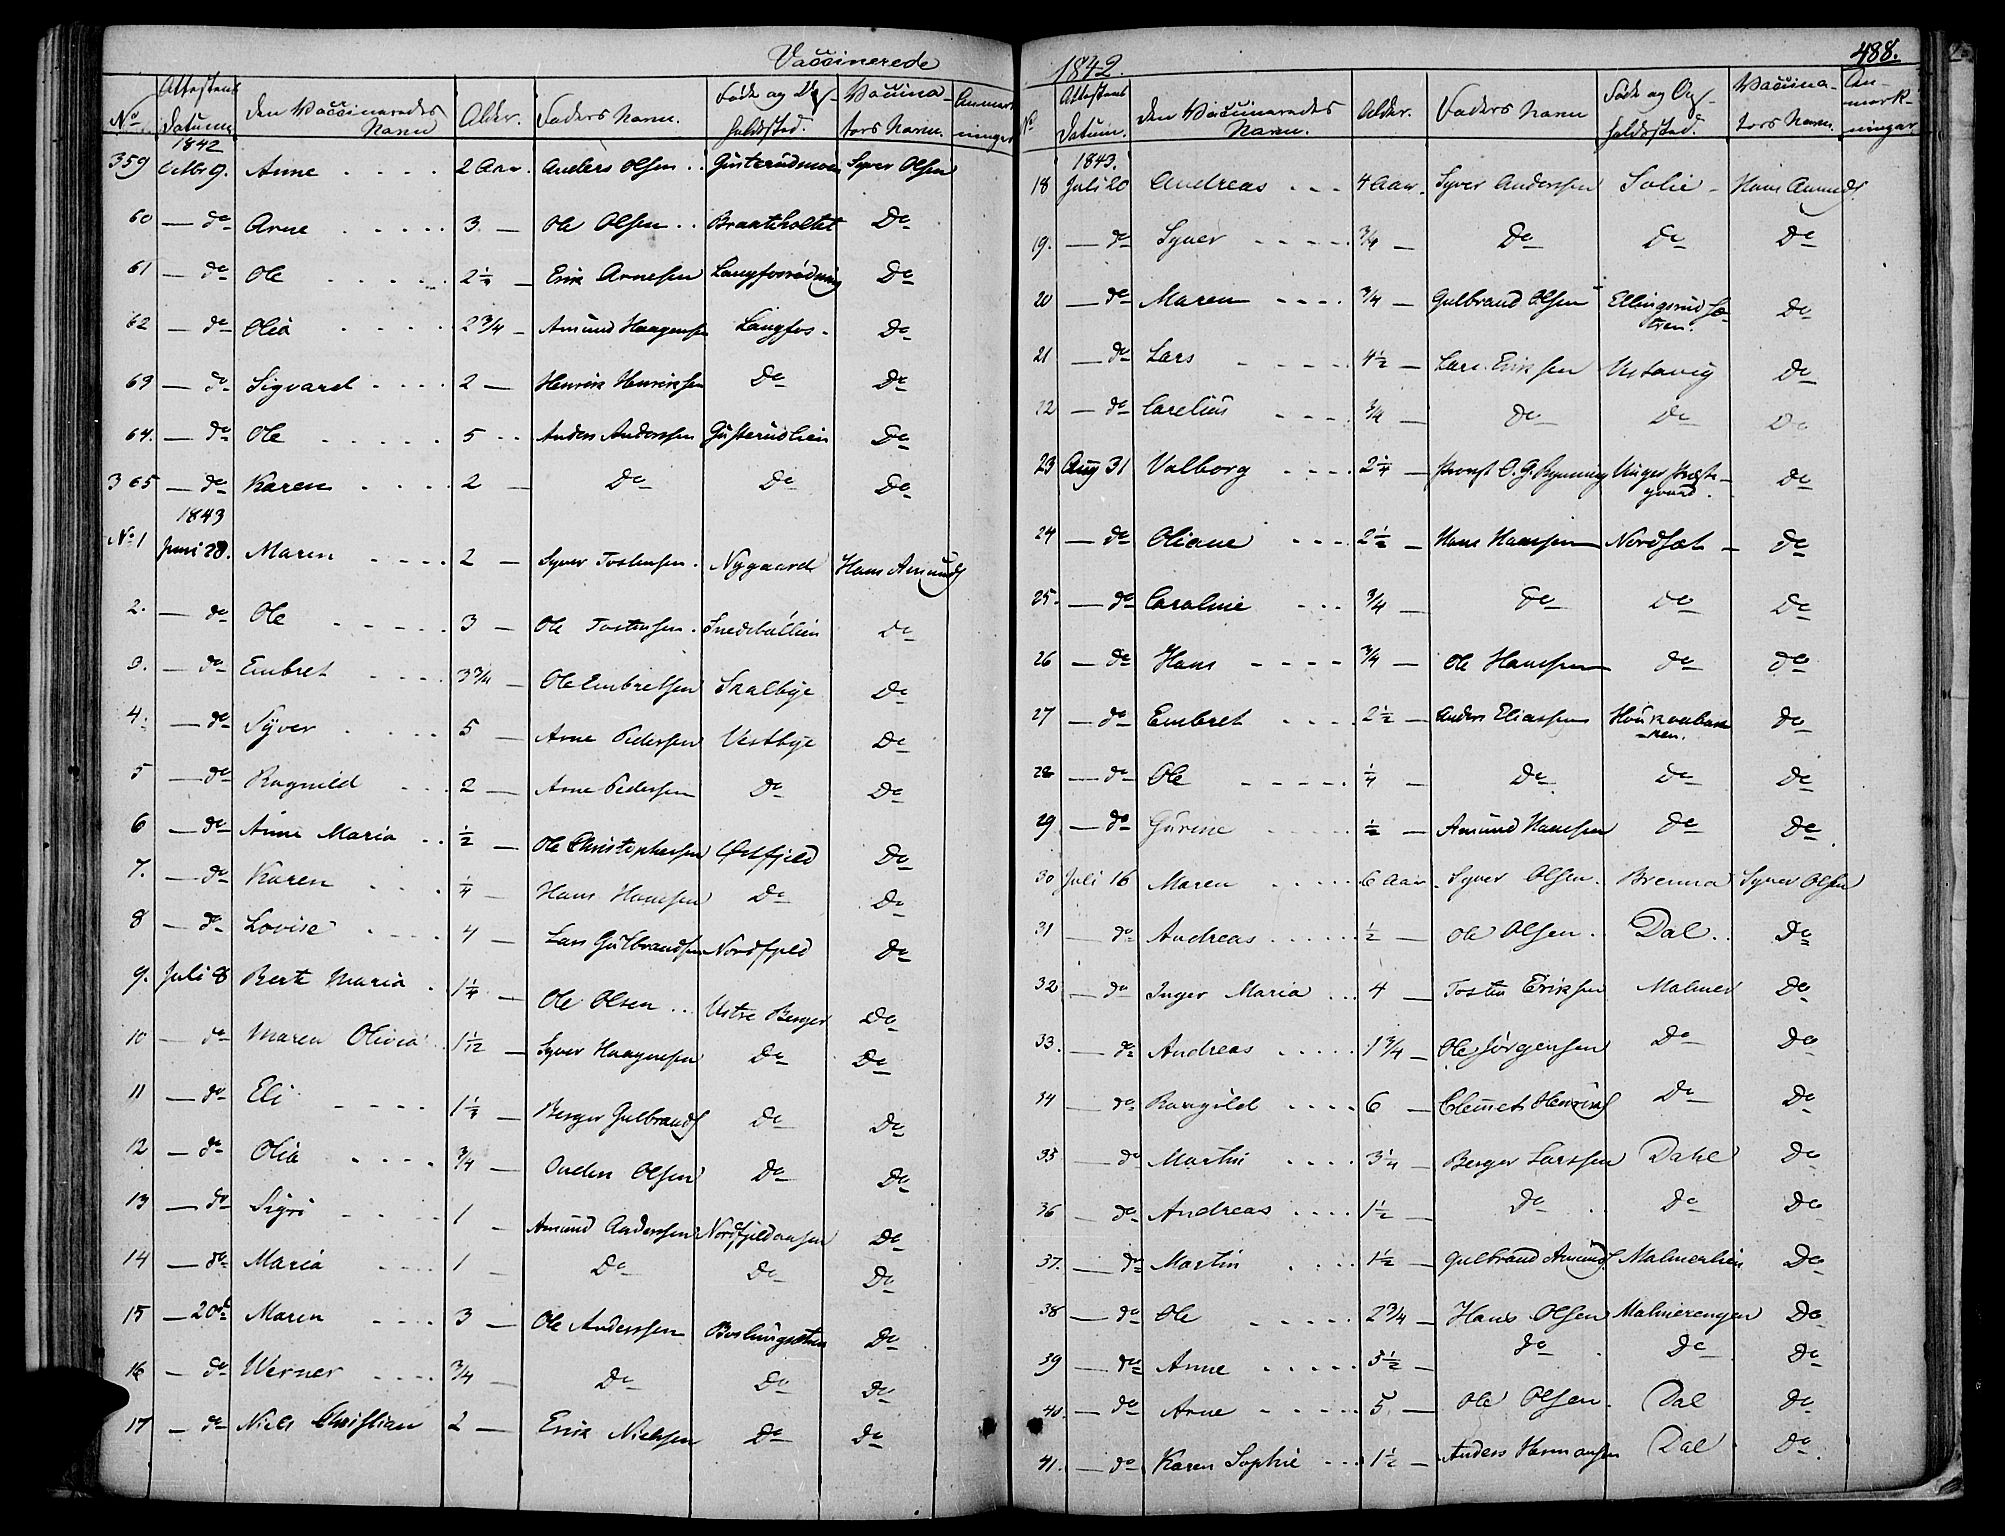 Vaccinerede
1842.
488.
No. Attestens Datum. Den Vaccineredes Navn Alder. Faders Navn. Føde og Op-holdssted. Vaccina-tors Navn. Anmærkninger
1842
359 Octbr 9. Anne 2 Aar. Anders Olsen Gusterudmoen Syver Olsen
60 — do Arne 3 — Ole Olsen Braateholtet Do
61 — do Ole — Erik Arnesen Do
62 — do Olia 2 3/4 — Amund Haagensen Langfos Do
63 — do Sigvard 2 — Henrik Henriksen Do Do
64. — do Ole 5 Anders Anderssen Gusterudlien Do
365 — do Karen 2 — Do Do Do
1843
No 1 Juni 28. Maren 2 — Syver Tostensen Nygaard Hans Amunds
2. — do Ole 3 — Ole Tostensen Do
3. — do Embret 3 3/4 — Ole Embretsen Skalbye Do
4. — do Syver 5 — Arne Pedersen Vestbye Do
5 — do Ragnild 2 — Arne Pedersen Do Do
6 — do Anne Maria 1/2 — Ole Christophersen Østfjeld Do
7. — do Karen 1/4 — Hans Hansen Do Do
8 — do Lovise 4 — Lars Gulbrandsen Nordfjeld Do
9. Juli 8 Bert Maria 1 1/4 — Ole Olsen Vestre Berger Do
10 — do Maren Olivia 1 1/12 — Syver Haagensen Do Do
11 — do Eli — Berger Gulbrands Do Do
12 — do Olia 3/4 — Olsen Do Do
13 — do Sigri 1 — Amund Anderssen Nordfjeldaasen Do
14 — do Maria 1 — Do Do Do
15 — 20d Maren 3 — Ole Anderssen Do
16 — do Werner 3/4 — Do Do Do
17 — do Niels Christian 2 — Erik Nielsen Do Do
No Attestens Datum. Den Vaccineredes Navn. Alder. Faders Navn Føde og Op-holdssted. Vaccina-tors Navn. An-mærk-ninger
1843.
18 Juli 20 Andreas 4 Aar. Syver Anderssen Solie Hans Amunds
19. — do Syver 3/4 — Do Do Do
20 — do Maren 3/4 — Gulbrand Olsen Ellingsrud Sæ-tren. Do
21 — do Lars 4 1/2 — Lars Eriksen Do
22 — do Carelius 3/4 — Do Do Do
23 Aug 31 Valborg 2 1/4 — Provst O. G. Rynning Vinger Præste-gaard. Do
24 — do Oliane 2 1/2 — Hans Hanssen Nordsæt — Do
25. — do Caroline 3/4 — Do Do Do
26 — do Hans 3/4 — Ole Hanssen Do Do
27 — do Embret 2 1/2 — Anders Eliassen Do
28 — do Ole 1/4 — Do Do Do
29 — do Gurine 1/2 — Amund Hanssen Do Do
30 Juli 16 Maren 6 Aar. Syver Olsen Brenna Syver Olsen
31 — do Andreas 1/2 — Ole Olsen. Dal. Do
32 — do Inger Maria 4 — Tosten Eriksen Malmer Do
33. — do Andreas 1 3/4 — Ole Jørgensen Do Do
34 — do Rangild 6 — Clemet Henriks Do Do
35 — do Martin 3 1/4 — Berger Larssen Dahl Do
36 — do Andreas 1 1/2 — Do Do Do
37. — do Martin 1 1/2 — Gulbrand Amunds. Malmerlien Do
38 — do Ole 2 3/4 — Hans Olsen Malmerengen Do
39 — do Anne 5 1/2 — Do Do Do
40. — do Arne 5. — Ole Olsen. Dal Do
41. — do Karen Sophie 1 1/2 — Anders Hermansen Dal Do